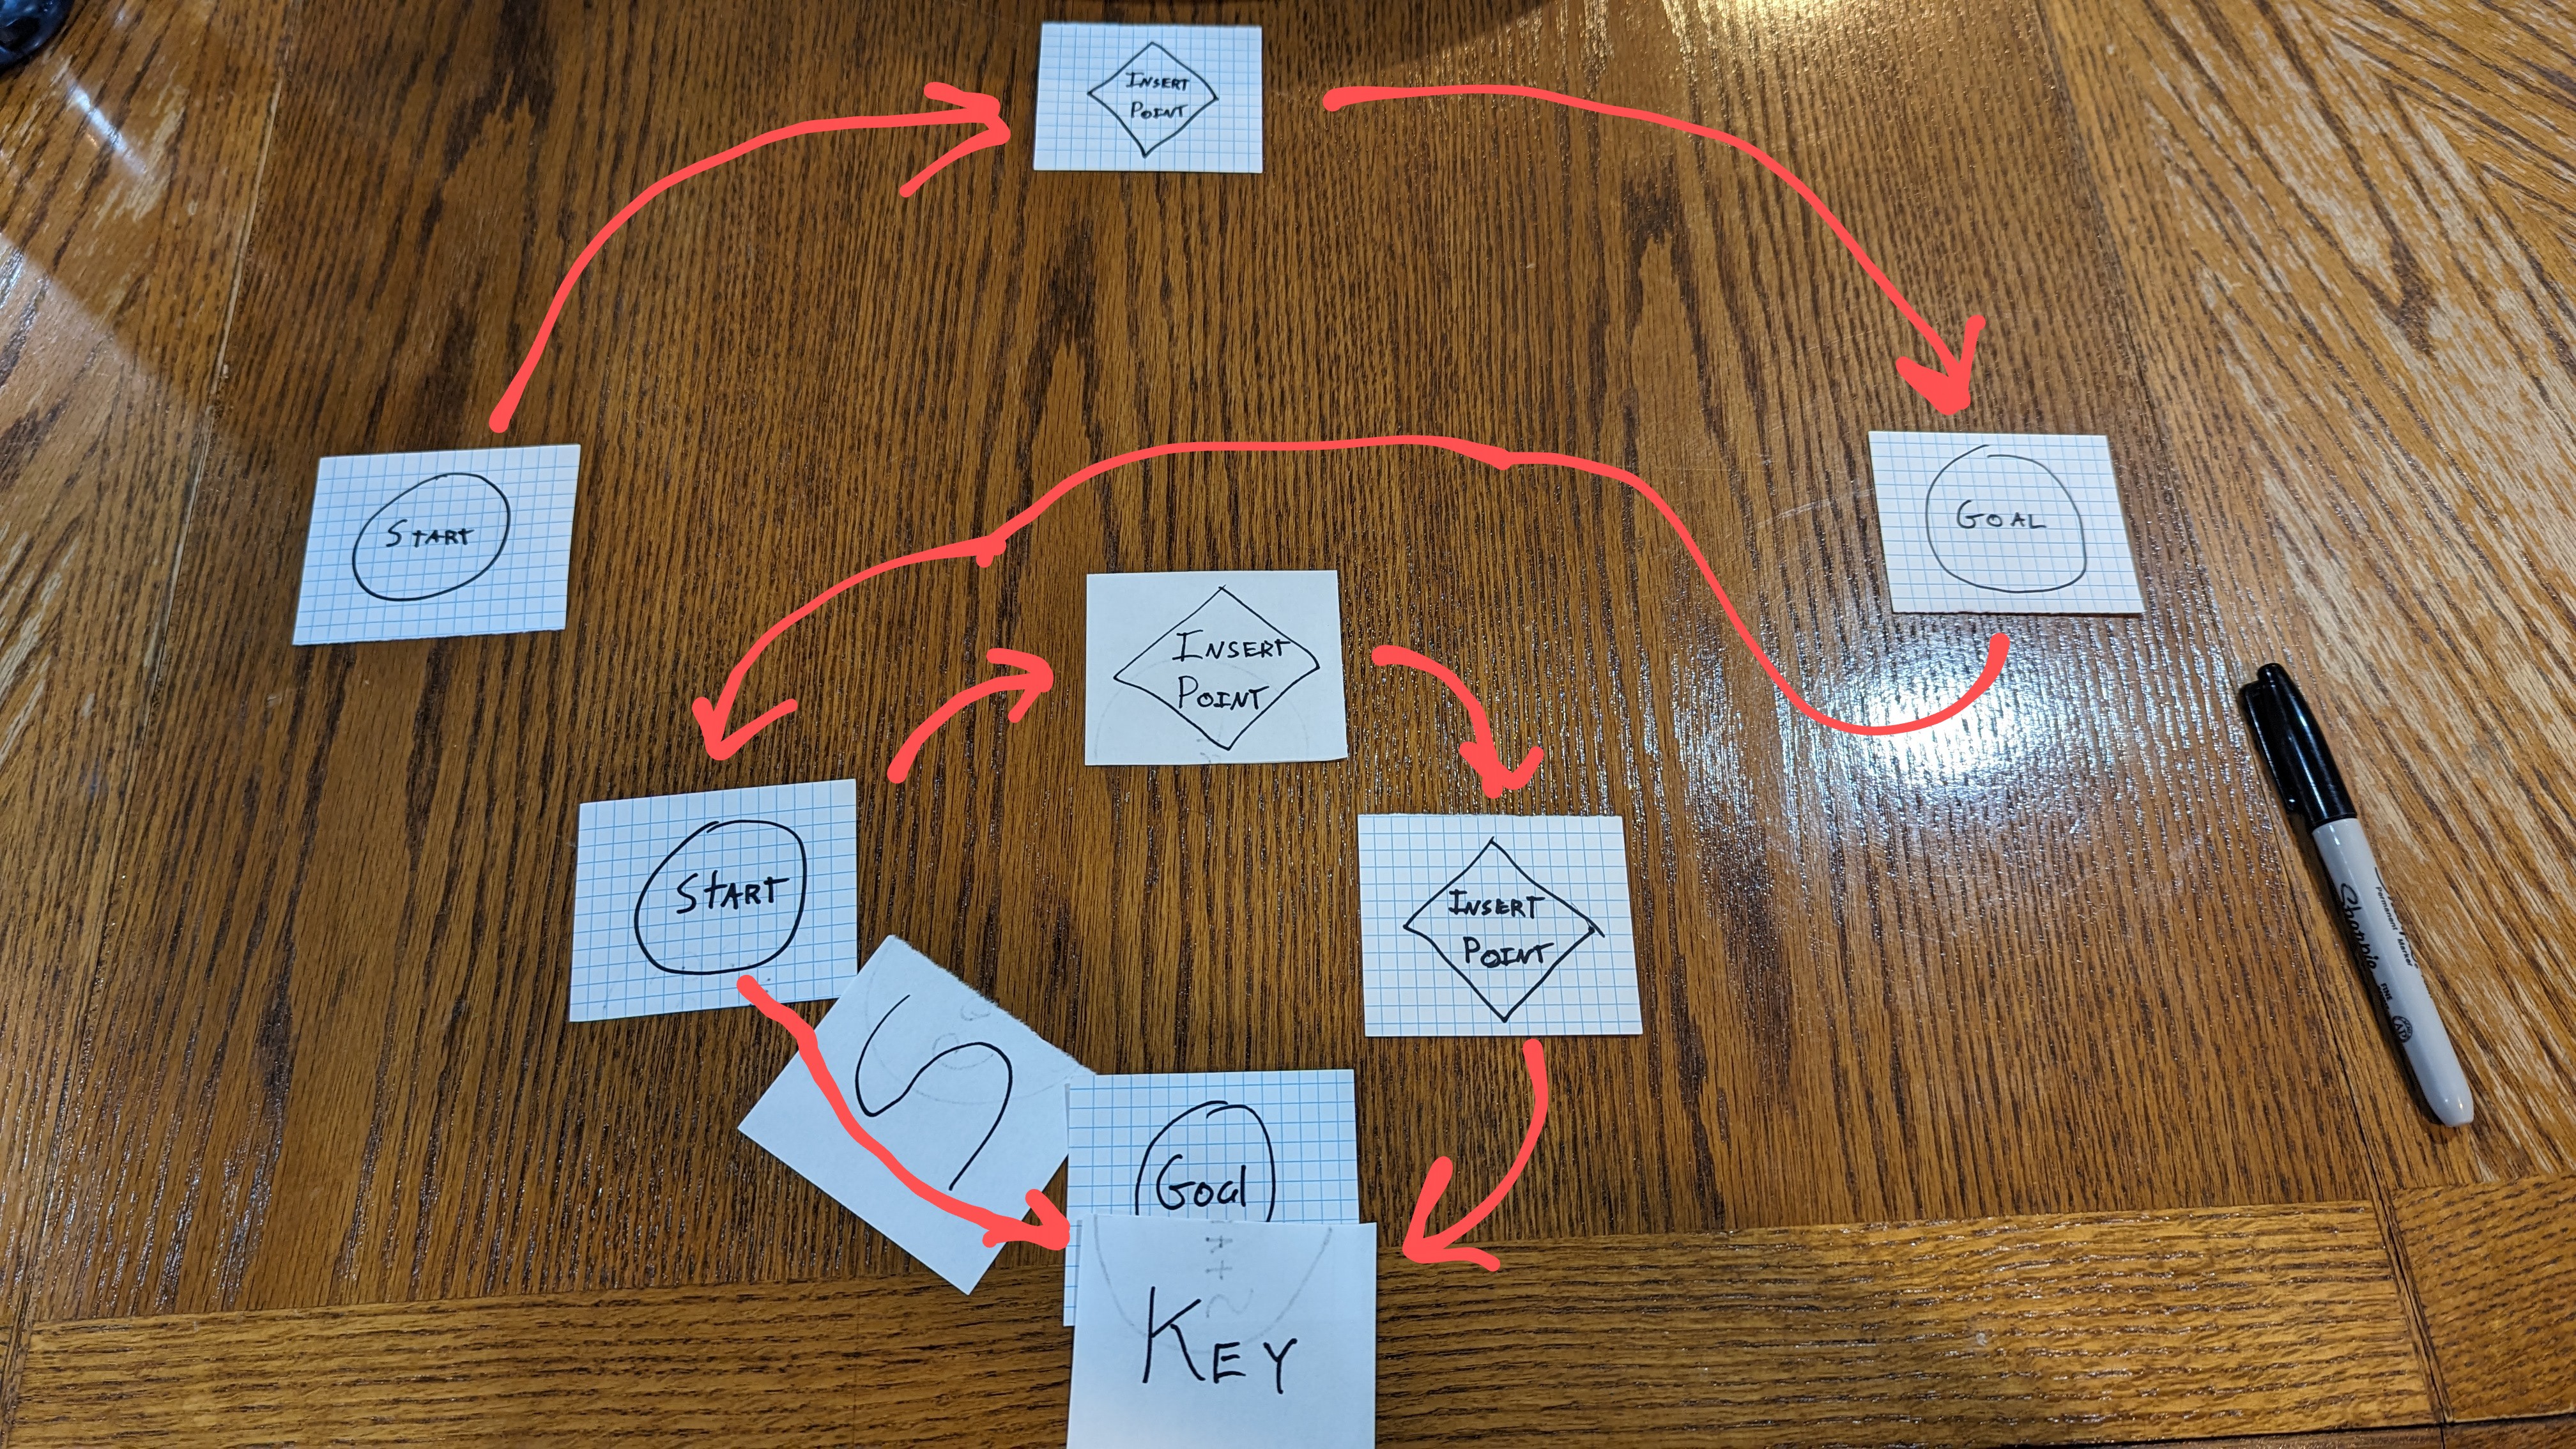 INSERT
POINT
START
GOAL
INSERT
POINT
START
INSERT
POINT
Goal
KEY
Sharpie
Permanent Marker
FINE
AP